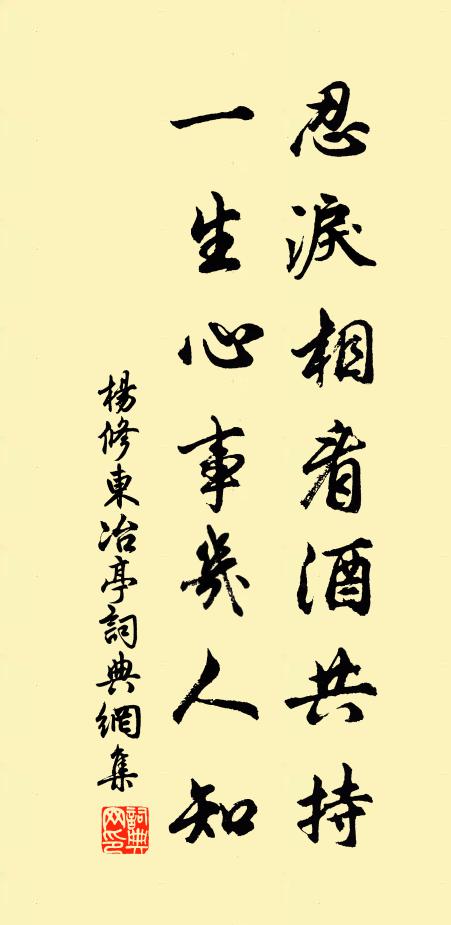 忍淚相看酒共持
一生心事幾人知
楊修東冶亭詞典網集
詞典網印